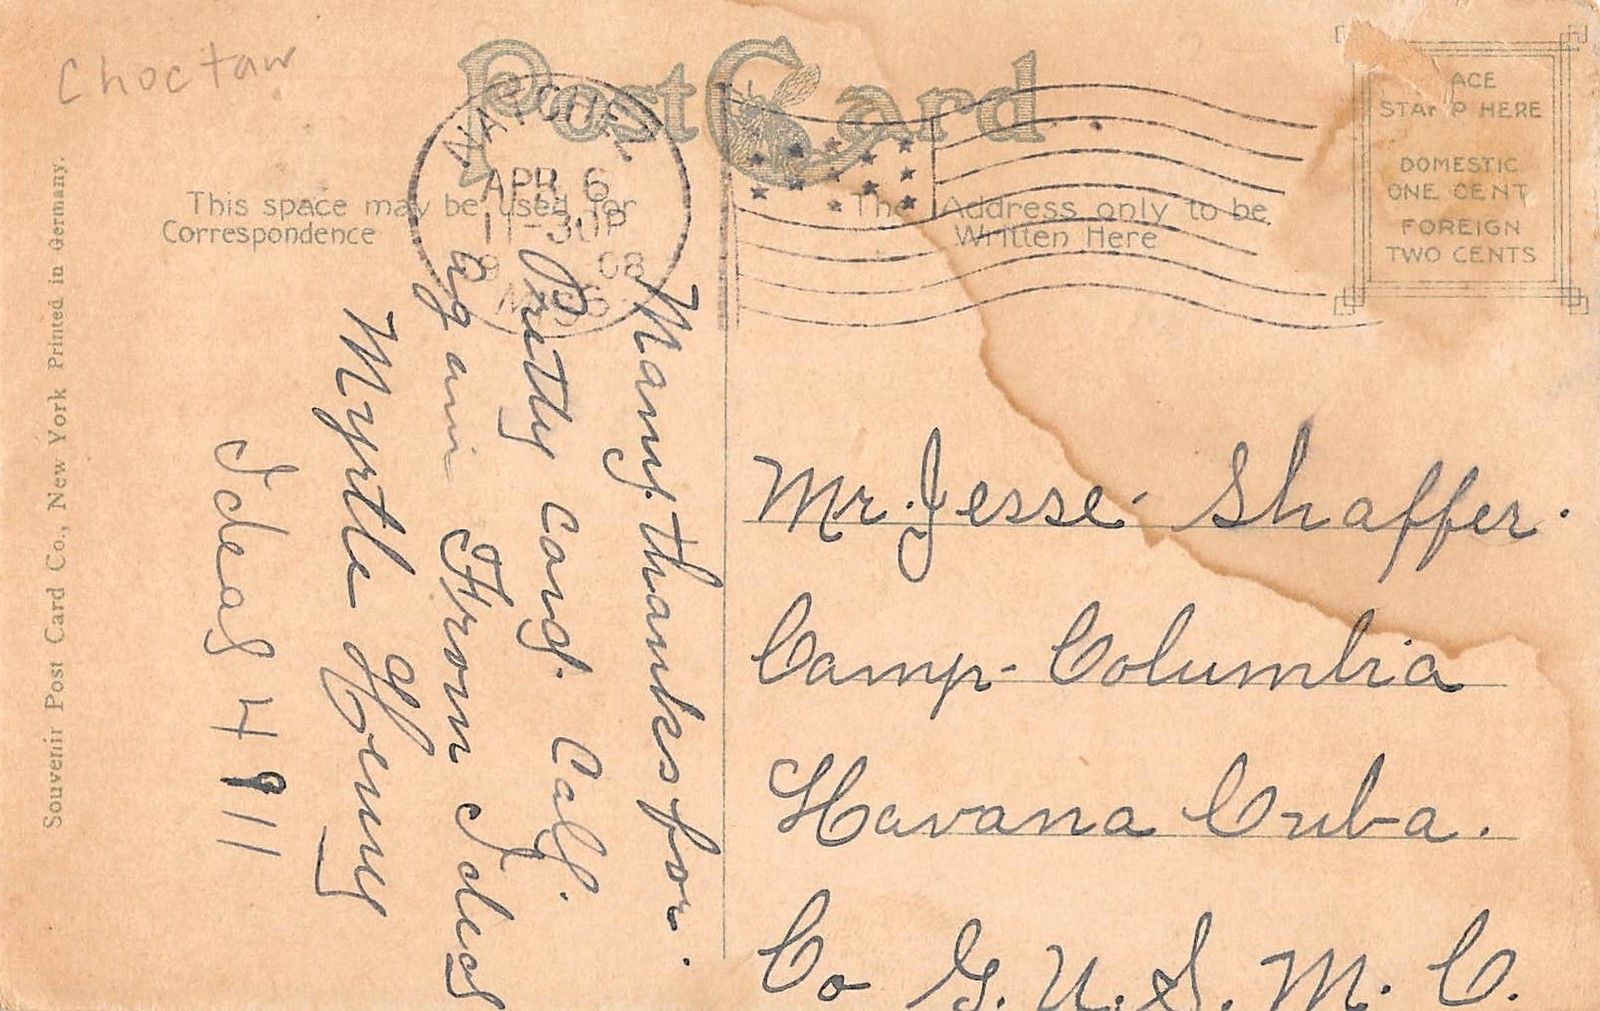 Choctaw
Post Card
NATCHEZ
APR 6
11-30P
08
MISS
This space may be used for
Correspondence
The Address only to be
Written Here
ACE
STAMP HERE
DOMESTIC
ONE CENT
FOREIGN
TWO CENTS
Souvenir Post Card Co., New York Printed in Germany.
Many thanks for
Pretty Card. Call.
again From Ideal
Myrtle Henny
Ideal 4911
Mr. Jesse Shaffer.
Camp- Columbia
Havana Cuba.
Co G. U. S. M. C.